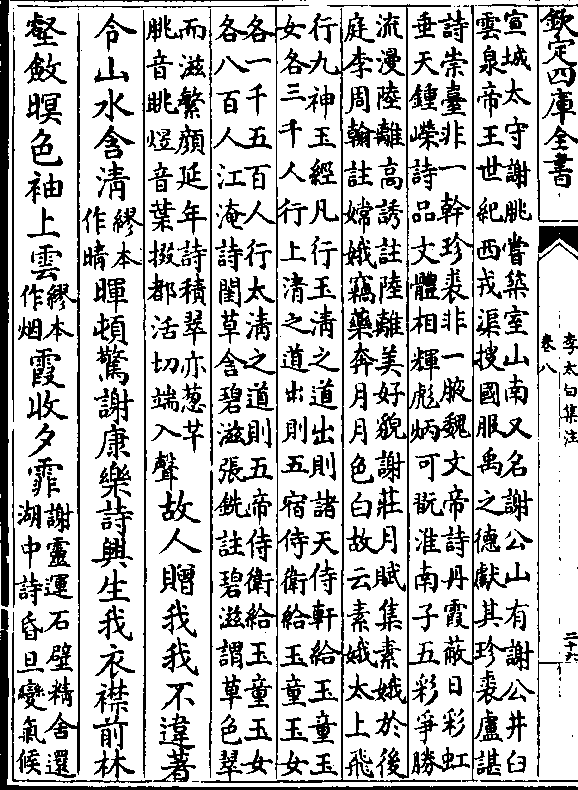 欽定四庫全書
李太白集注
卷八
二十六
宣城太守謝朓嘗築室山南又名謝公山有謝公井臼
雲泉帝王世紀西戎渠搜國服禹之德獻其珍裘盧諶
詩崇臺非一幹珍裘非一腋魏文帝詩丹霞蔽日彩虹
垂天鍾嶸詩品文體相輝彪炳可翫淮南子五彩爭勝
流漫陸離高誘註陸離美好貌謝莊月賦集素娥於後
庭李周翰註嫦娥竊藥奔月月色白故云素娥太上飛
行九神玉經凡行玉清之道出則諸天侍軒給玉童玉
女各三千人行上清之道出則五宿侍衛給玉童玉女
各一千五百人行太清之道則五帝侍衛給玉童玉女
各八百人江淹詩閨草含碧滋張銑註碧滋謂草色翠
而滋繁顔延年詩積翠亦葱芊
朓音眺煜音葉掇都活切端入聲
故人贈我我不違著
令山水含清繆本作晴暉頓驚謝康樂詩興生我衣襟前林
壑斂暝色袖上雲繆本作烟霞收夕霏謝靈運石壁精舍還湖中詩昏旦變氣候